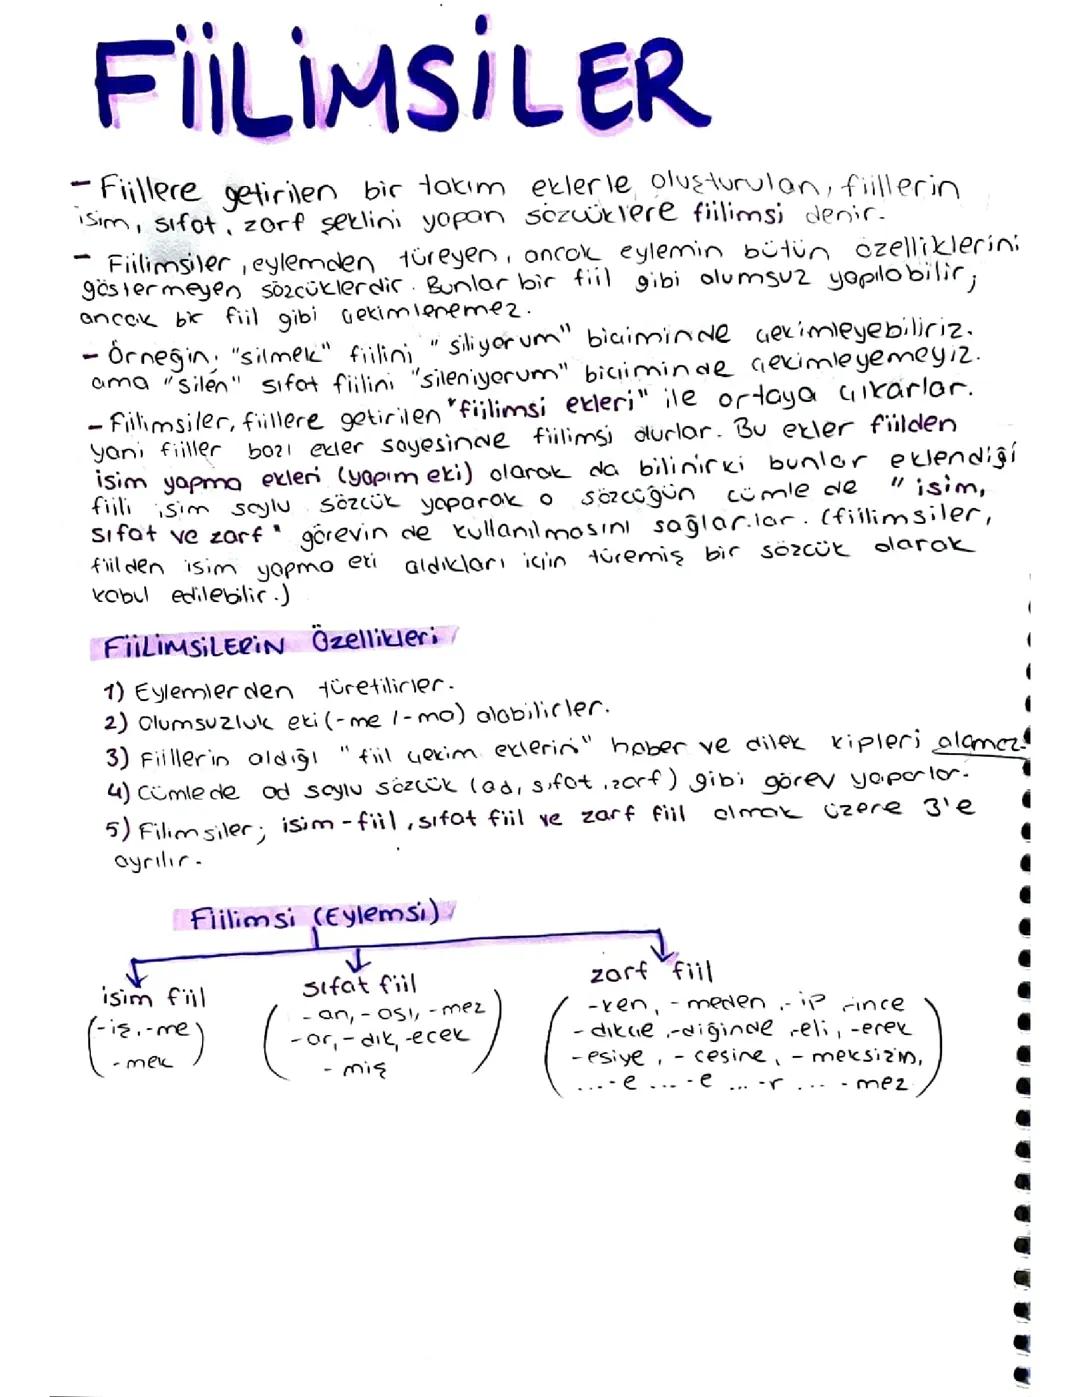 FİİLİMSİLER
- Fiillere getirilen bir takım eklerle oluşturulan, fiillerin
isim, sıfat, zarf şeklini yapan sözcüklere fiilimsi denir.
- Fiilimsiler, eylemden türeyen, ancak eylemin bütün özelliklerini
göstermeyen sözcüklerdir. Bunlar bir fiil gibi olumsuz yapılabilir;
ancak bir fiil gibi çekimlenemez.
- Örneğin, "silmek" fiilini "siliyorum" biçiminde çekimleyebiliriz.
ama "silen" sıfat fiilini "sileniyorum" biçiminde çekimleyemeyiz.
- Fiilimsiler, fiillere getirilen "fiilimsi ekleri" ile ortaya çıkarlar.
yani fiiller bazı ekler sayesinde fiilimsi olurlar. Bu ekler fiilden
isim yapma ekleri (yapım eki) olarak da bilinirki bunlar eklendiği
fiili isim soylu sözcük yaparak o sözcüğün cümle de "isim,
sıfat ve zarf" görevin de kullanılmasını sağlarlar. (fiilimsiler,
fiilden isim yapma eki aldıkları için türemiş bir sözcük olarak
kabul edilebilir.)
FİİLİMSİLERİN Özellikleri
1) Eylemlerden türetilirler.
2) Olumsuzluk eki (-me / -ma) alabilirler.
3) Fiillerin aldığı "fiil çekim eklerini" haber ve dilek kipleri alamaz.
4) Cümlede ad soylu sözcük (ad, sıfat, zarf) gibi görev yaparlar.
5) Filimsiler; isim-fiil, sıfat fiil ve zarf fiil olmak üzere 3'e
ayrılır.
Fiilimsi (Eylemsi)
isim fiil
(-iş, -me
-mek)
sıfat fiil
(-an, -ası, -mez
-ar, -dık, -ecek
-miş)
zarf fiil
(-ken, -meden, -ip, -ince
-dıkçe, -diğinde, -eli, -erek
-esiye, -cesine, -meksizin,
...-e ... -e ... -r ... -mez)